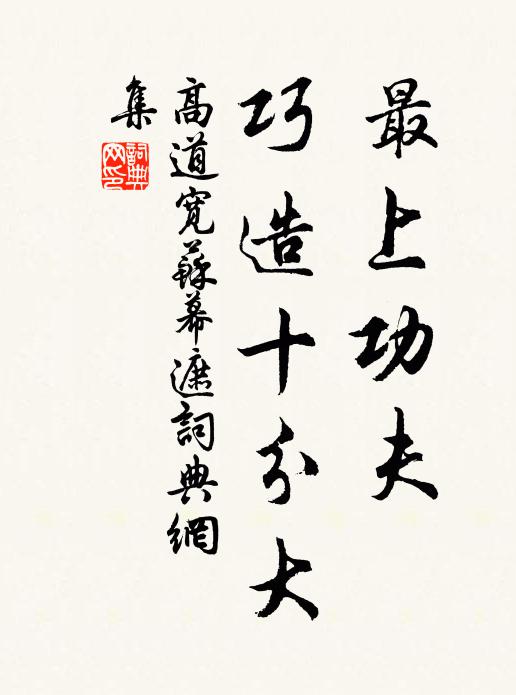 最上功夫
巧造十分大
高道寬蘇幕遮詞典網
集
詞典
网印